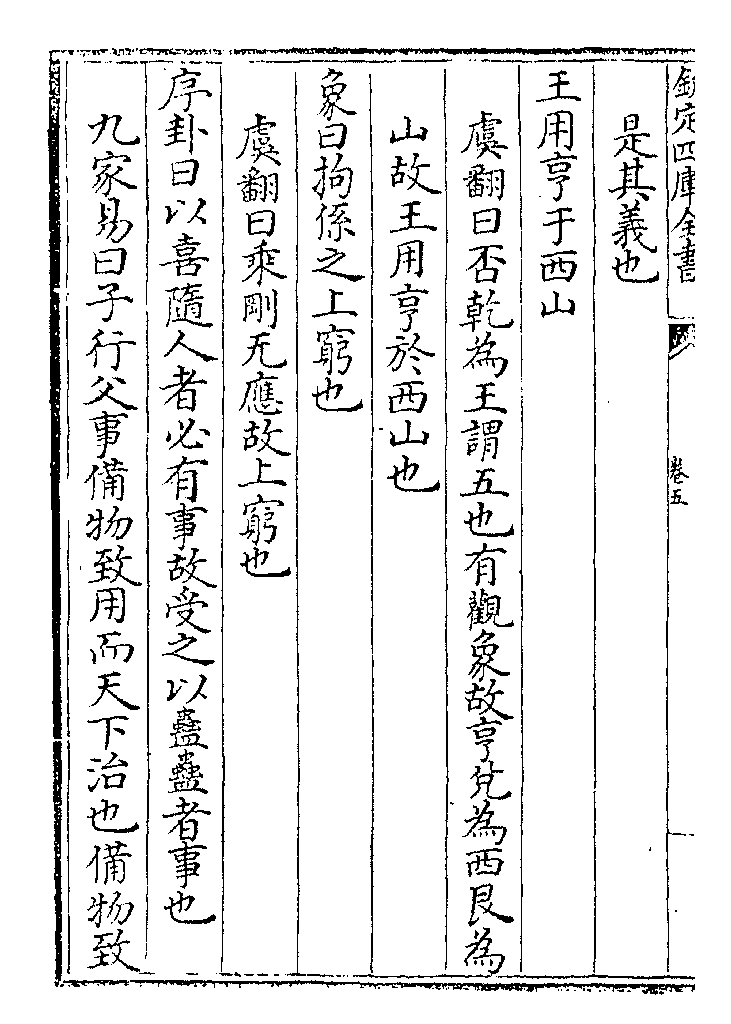 欽定四庫全書
卷五
是其義也
王用亨于西山
虞翻曰否乾為王謂五也有觀象故亨兌為西艮為
山故王用亨於西山也
象曰拘係之上窮也
虞翻曰乘剛无應故上窮也
序卦曰以喜隨人者必有事故受之以蠱蠱者事也
九家易曰子行父事備物致用而天下治也備物致